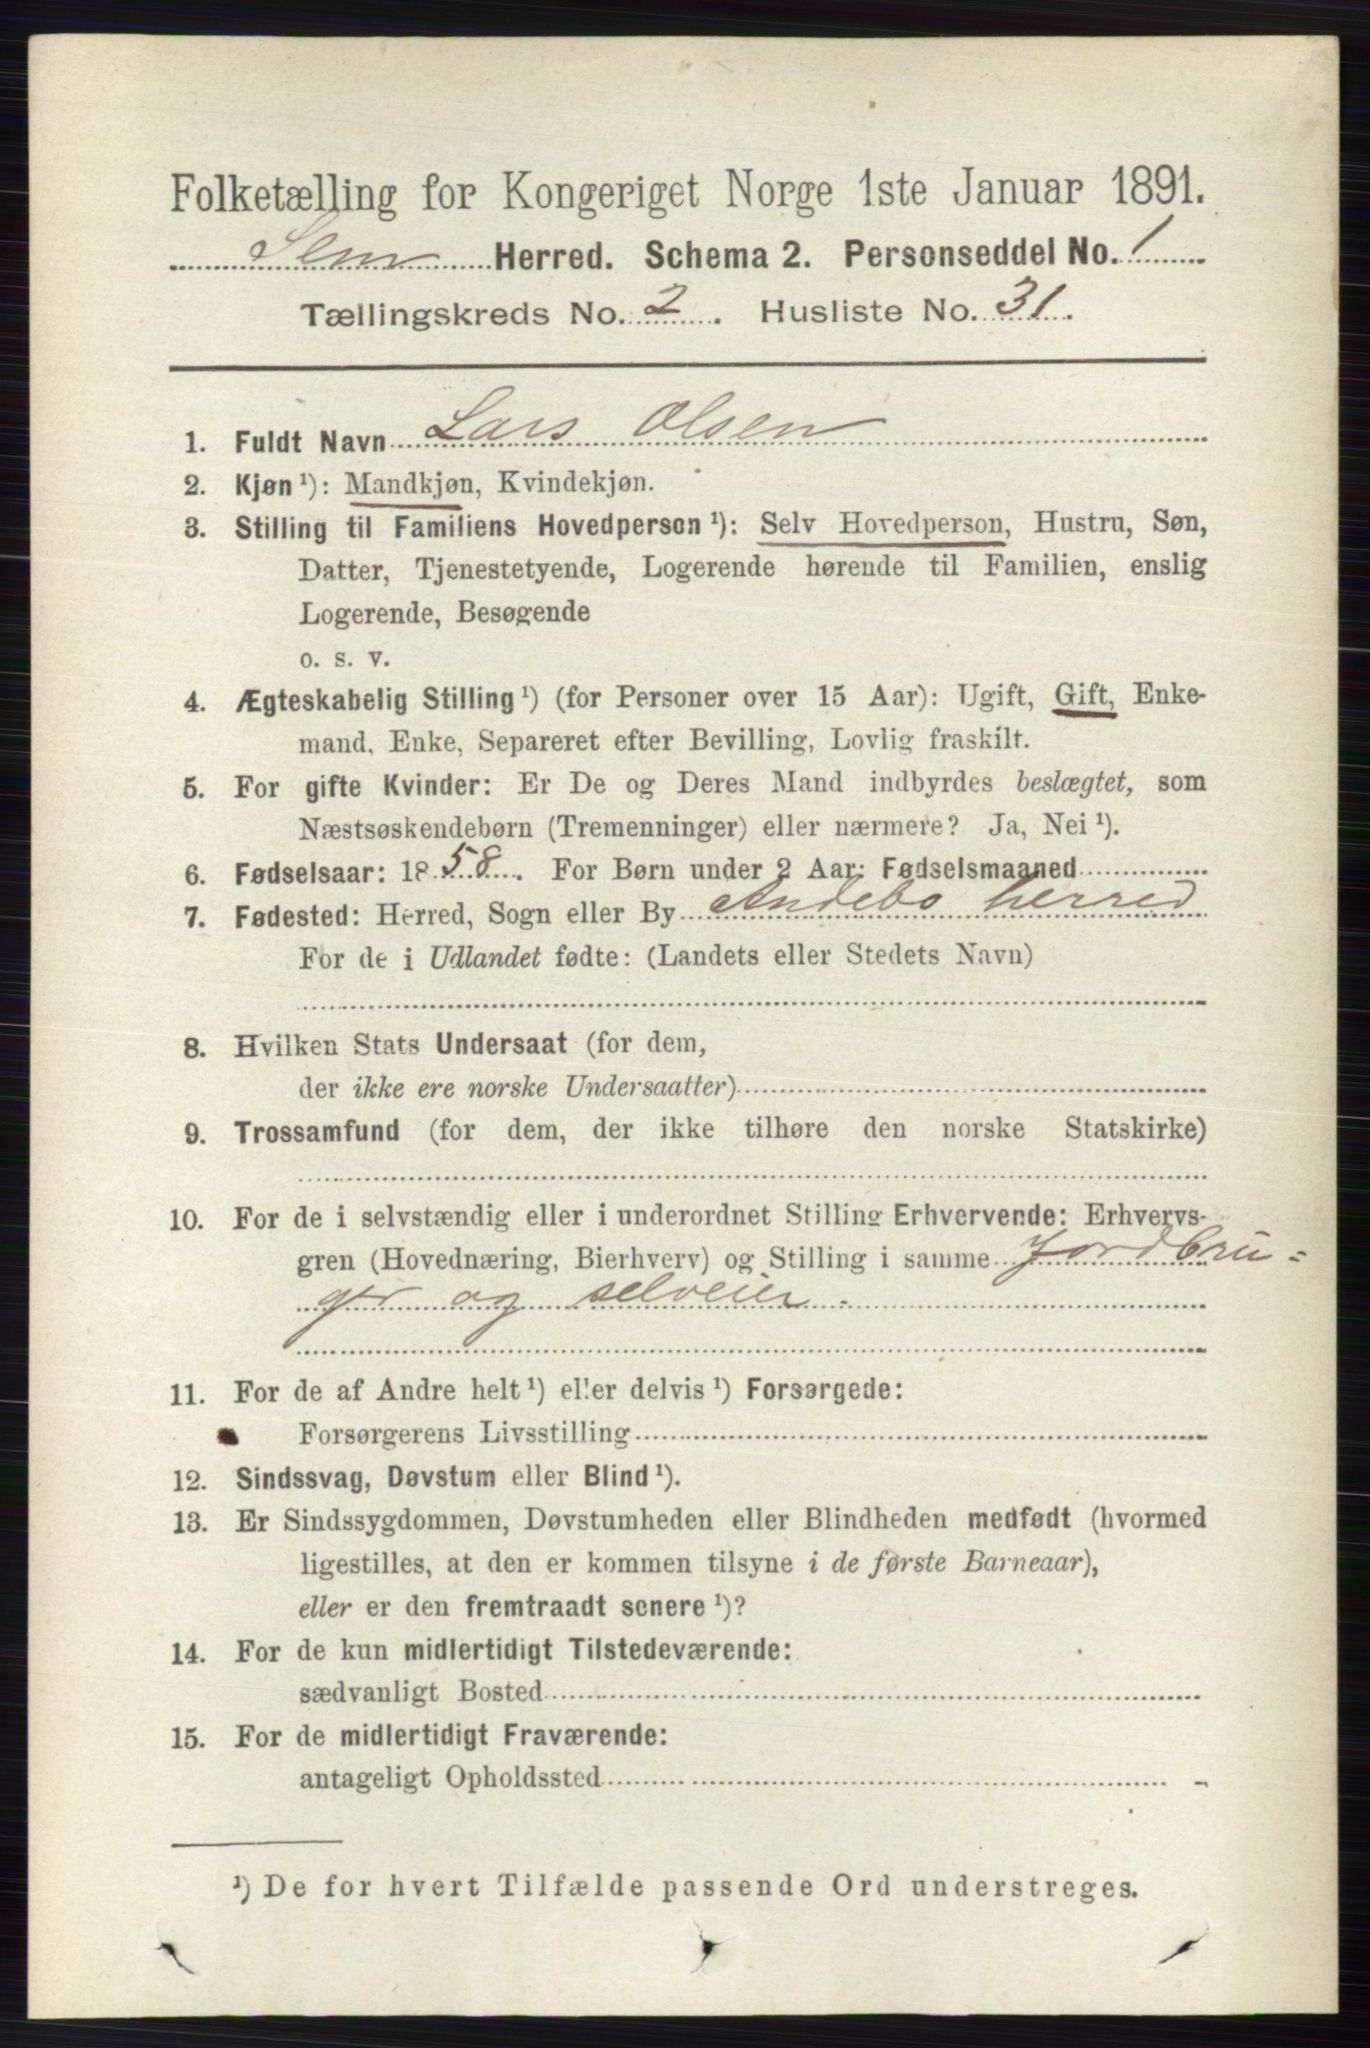 Folketælling for Kongeriget Norge 1ste Januar 1891.
Sem Herred. Schema 2. Personseddel No. 1
Tællingskreds No. 2. Husliste No. 31.
1. Fuldt Navn Lars Olsen
2. Kjøn ¹): Mandkjøn, Kvindekjøn.
3. Stilling til Familiens Hovedperson ¹): Selv Hovedperson, Hustru, Søn,
Datter, Tjenestetyende, Logerende hørende til Familien, enslig
Logerende, Besøgende
o. s. v.
4. Ægteskabelig Stilling ¹) (for Personer over 15 Aar): Ugift, Gift, Enke-
mand, Enke, Separeret efter Bevilling, Lovlig fraskilt.
5. For gifte Kvinder: Er De og Deres Mand indbyrdes beslægtet, som
Næstsøskendebørn (Tremenninger) eller nærmere? Ja, Nei ¹).
6. Fødselsaar: 1858. For Børn under 2 Aar: Fødselsmaaned
7. Fødested: Herred, Sogn eller By Andebo herred
For de i Udlandet fødte: (Landets eller Stedets Navn)
8. Hvilken Stats Undersaat (for dem,
der ikke ere norske Undersaatter)
9. Trossamfund (for dem, der ikke tilhøre den norske Statskirke)
10. For de i selvstændig eller i underordnet Stilling Erhvervende: Erhvervs-
gren (Hovednæring, Bierhverv) og Stilling i samme Jordbru=
ger og selveier.
11. For de af Andre helt ¹) eller delvis ¹) Forsørgede:
Forsørgerens Livsstilling
12. Sindssvag, Døvstum eller Blind ¹).
13. Er Sindssygdommen, Døvstumheden eller Blindheden medfødt (hvormed
ligestilles, at den er kommen tilsyne i de første Barneaar),
eller er den fremtraadt senere ¹)?
14. For de kun midlertidigt Tilstedeværende:
sædvanligt Bosted
15. For de midlertidigt Fraværende:
antageligt Opholdssted
¹) De for hvert Tilfælde passende Ord understreges.